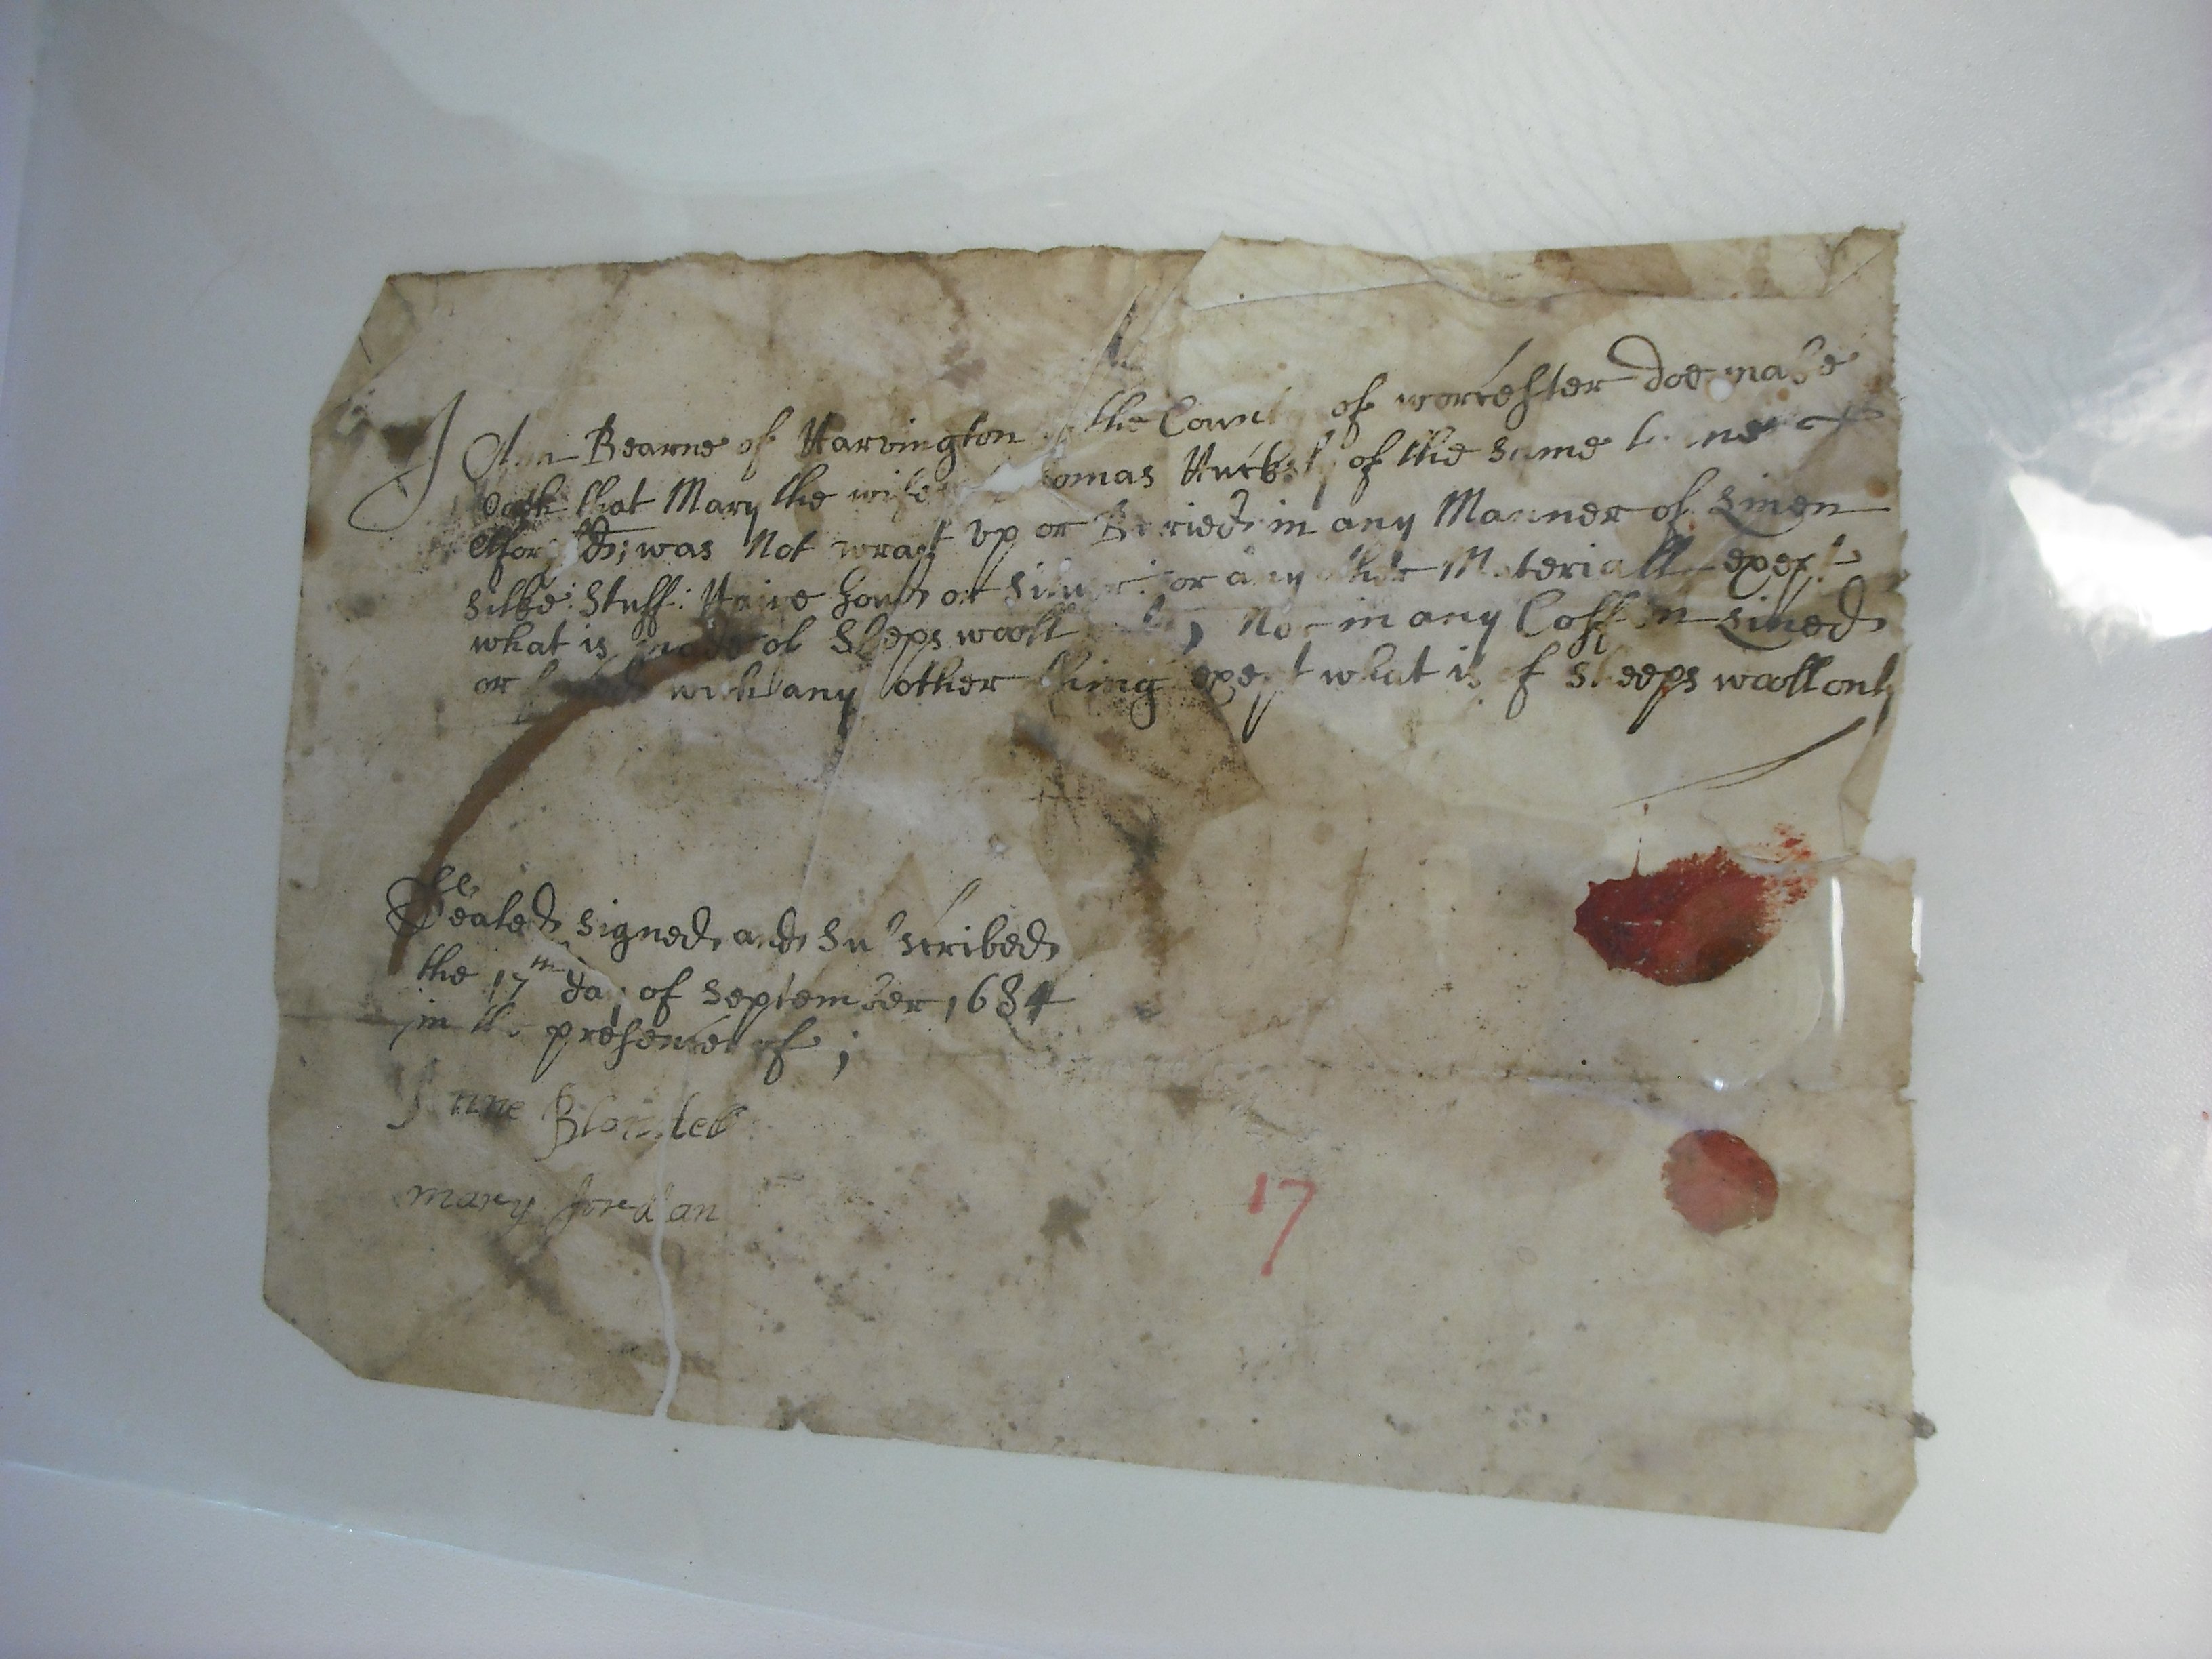 I Ann Bearne of Harvington the County of worcester doe make
oath that Mary the wife Thomas of the same towne &
was Not wrapt vp or Buried in any Manner of Linen
silke: stuff: Haire Gould or silver: or any other Materiall exept
what is made of Sheeps wooll Nor in any Coffin Lined
or with any other thing exept what is of sheeps wooll only
Sealed signed and Subscribed
the 17th day of September 1684
in the presence of ;
Anne
mary Jordan
17